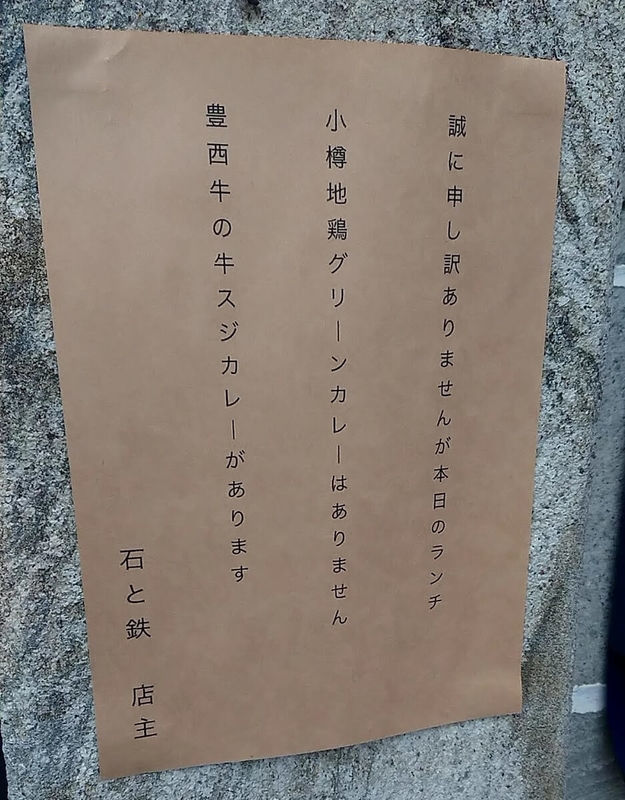 誠に申し訳ありませんが本日のランチ
小樽地鶏グリーンカレーはありません
豊西牛の牛スジカレーがあります
石と鉄　店主